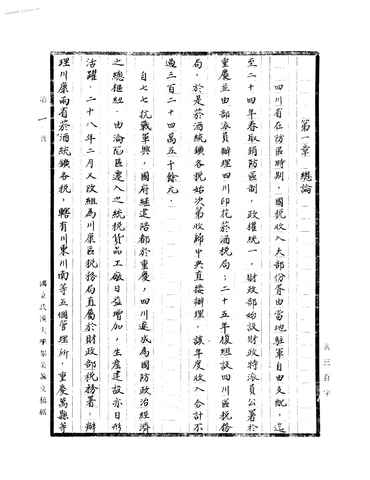 第一章 總論
四川省在防區時期，國稅收入大部份皆由當地駐軍自由支配，迄
至二十四年春取銷防區制，政權統一，財政部始設財政特派員公署於
重慶並由部派員辦理四川印花菸酒稅局；二十五年復組設四川區稅務
局，於是菸酒統鑛各稅始次第收歸中央直接辦理，該年度收入合計不
過三百二十四萬五千餘元。
自七七抗戰軍興，國府經建陪都於重慶，四川遂成為國防政治經濟
之總樞紐，由淪陷區遷入之統稅貨品工廠日益增加，生產建設亦日形
活躍。二十八年二月又改組為川康區稅務局直屬於財政部稅務署，辦
理川康兩省菸酒統鑛各稅，轄有川東川南等五個管理所，重慶萬縣等
第一頁
國立武漢大學畢業論文稿紙
共三百字